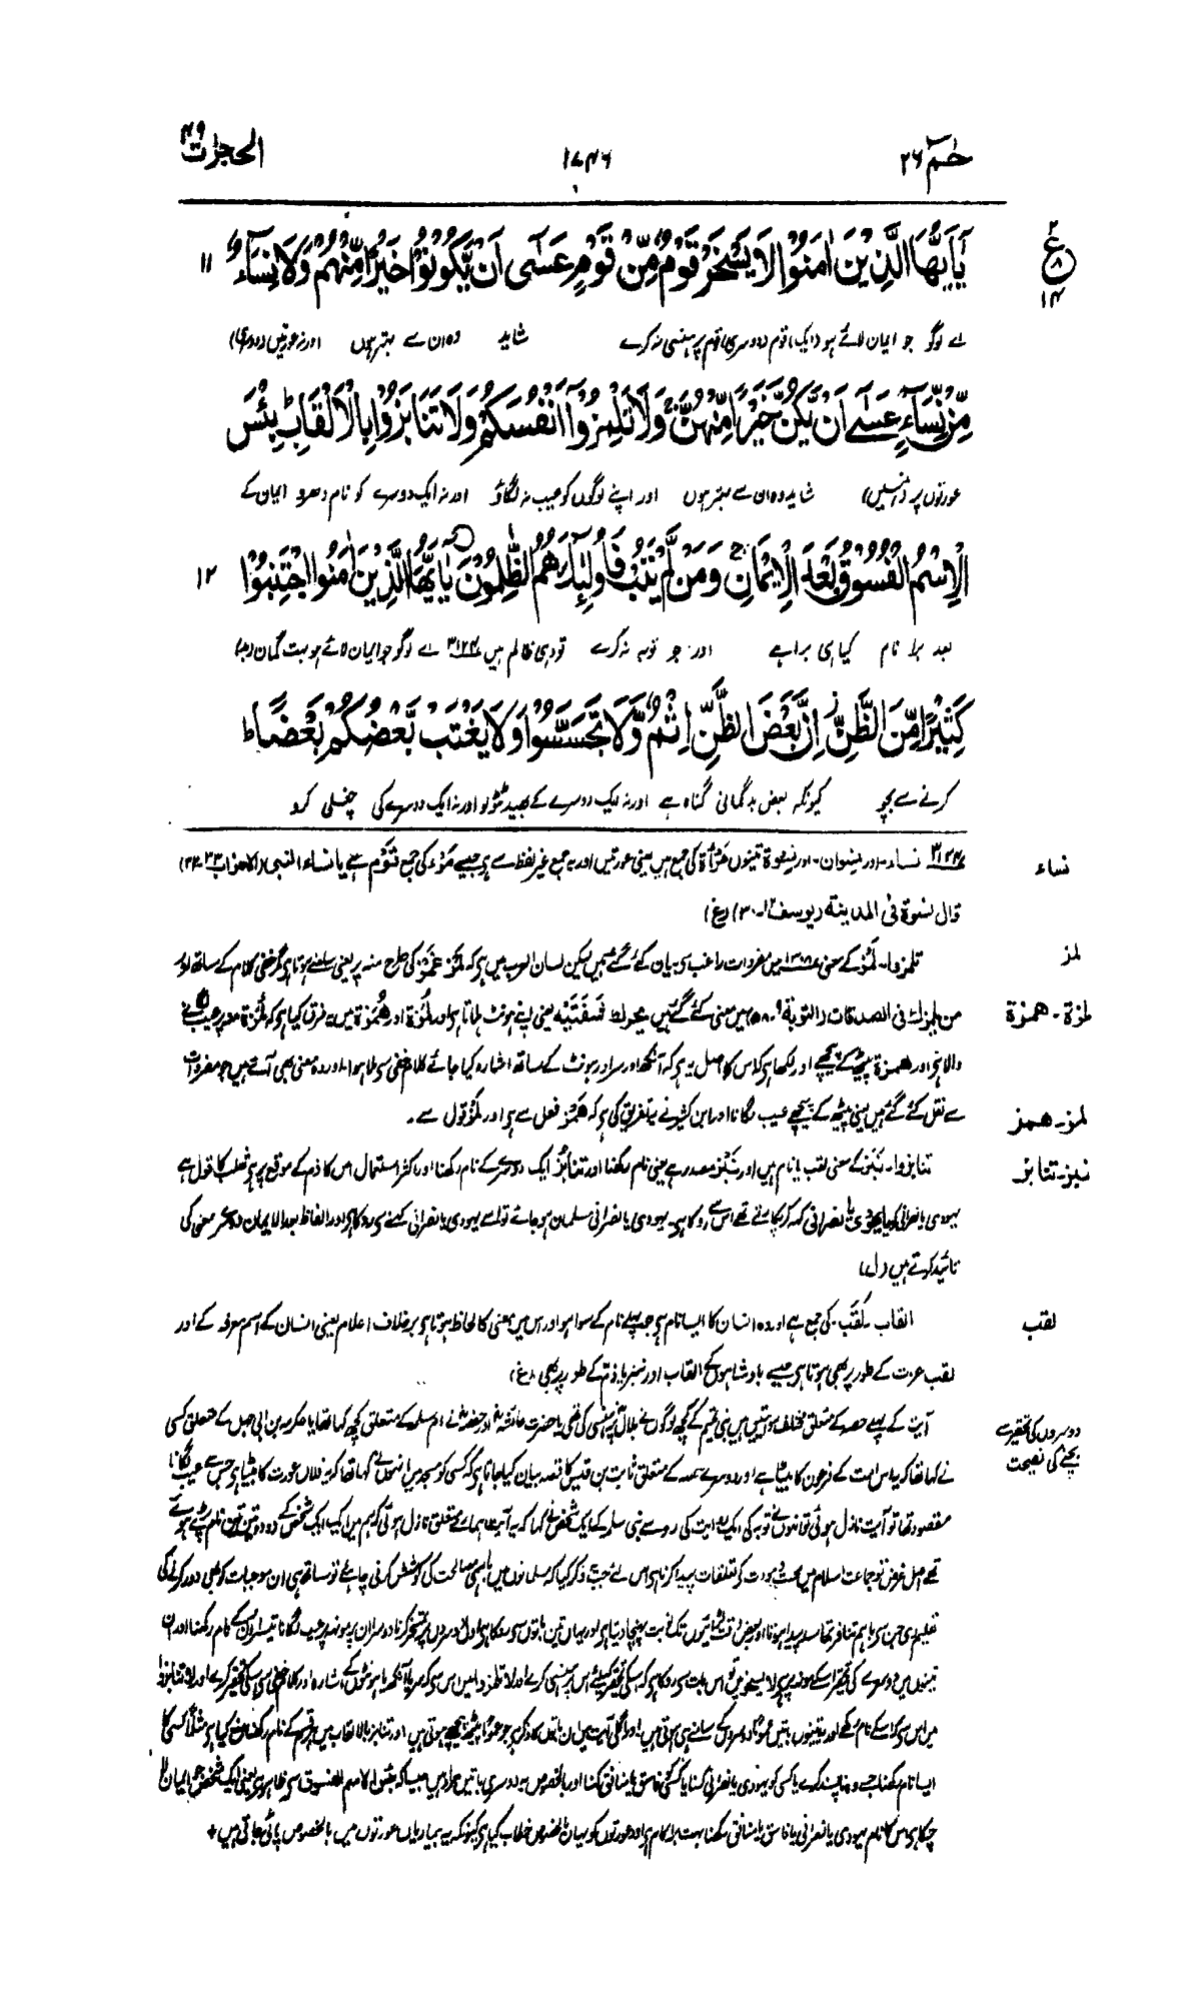 حٰمٓ ٢٦
١٧٤٦
الحجرٰت ٤٩
ع ٢ ٨ ١٤
يٰٓاَيُّهَا الَّذِيْنَ اٰمَنُوْا لَا يَسْخَرْ قَوْمٌ مِّنْ قَوْمٍ عَسٰٓى اَنْ يَّكُوْنُوْا خَيْرًا مِّنْهُمْ وَلَا نِسَآءٌ ١١
اے لوگو جو ایمان لائے ہو (ایک) قوم (دوسری) قوم پر ہنسی نہ کرے شاید وہ ان سے بہتر ہوں اور نہ عورتیں (دوسری)
مِّنْ نِّسَآءٍ عَسٰٓى اَنْ يَّكُنَّ خَيْرًا مِّنْهُنَّ ۚ وَلَا تَلْمِزُوْٓا اَنْفُسَكُمْ وَلَا تَنَابَزُوْا بِالْاَلْقَابِ ؕ بِئْسَ
عورتوں پر (ہنسیں) شاید وہ ان سے بہتر ہوں اور اپنے لوگوں کو عیب نہ لگاؤ اور نہ ایک دوسرے کو نام دھرو ایمان کے
الْاِسْمُ الْفُسُوْقُ بَعْدَ الْاِيْمَانِ ۚ وَمَنْ لَّمْ يَتُبْ فَاُولٰٓئِكَ هُمُ الظّٰلِمُوْنَ يٰٓاَيُّهَا الَّذِيْنَ اٰمَنُوا اجْتَنِبُوْا ١٢
بعد برا نام کیا ہی برا ہے اور جو توبہ نہ کرے تو وہی ظالم ہیں ۳۱۲۴ اے لوگو جو ایمان لائے ہو بہت گمان (بد)
كَثِيْرًا مِّنَ الظَّنِّ ۫ اِنَّ بَعْضَ الظَّنِّ اِثْمٌ وَّلَا تَجَسَّسُوْا وَلَا يَغْتَبْ بَّعْضُكُمْ بَعْضًا ؕ
کرنے سے بچو کیونکہ بعض بدگمانی گناہ ہے اور نہ ایک دوسرے کے بھید ٹٹولو اور نہ ایک دوسرے کی چغلی کرو
نساء
۳۱۲۴ نساء۔ اور نسوان۔ اور نسوۃ تینوں مرأۃ کی جمع ہیں یعنی عورتیں اور یہ جمع غیر لفظ سے ہے جیسے مرء کی جمع قوم ہے یا نساء النبی (الاحزاب ۳۳۔
قال نسوة فی المدینة (یوسف ۱۲۔ ۳۰) (غ)
لمز
تلمزوا۔ لمز کے معنی میں مفردات راغب سے بیان کئے گئے ہیں لیکن لسان العرب میں ہے کہ لمز غمز کی طرح منہ پر یعنی سامنے ہوتا ہے مگر خفی کلام کے ساتھ اور
لمزة۔ همزة
من یلمزك فی الصدقات (التوبة ۹۔ ۵۸) میں معنی کئے گئے ہیں یحرك شفتیه یعنی اپنے ہونٹ ہلاتا ہے اور لمزة اور همزة میں یہ فرق کیا ہے کہ لمزة منہ پر عیب لگانے
والا ہے اور همزة پیٹھ کے پیچھے اور لکھا ہے کہ اس کا اصل یہ ہے کہ آنکھ اور سر اور ہونٹ کے ساتھ اشارہ کیا جائے کلام خفی سے ملا ہوا۔ اور وہ معنی بھی آتے ہیں جو مفردات
لمز۔ همز
سے نقل کئے گئے ہیں یعنی پیٹھ کے پیچھے عیب لگانا اور ابن کثیر نے یہ تفریق کی ہے کہ همز فعل سے ہے اور لمز قول سے۔
نبز۔ تنابز
تنابزوا۔ نبز کے معنی لقب یا نام ہیں اور نبز مصدر ہے یعنی نام رکھنا اور تنابز ایک دوسرے کے نام رکھنا اور اکثر استعمال اس کا ذم کے موقع پر ہے ثعلب کا قول ہے
یہودی یا نصرانی کو یا یہودی یا نصرانی کہہ کر پکارتے تھے اس سے روکا ہے۔ یہودی یا نصرانی مسلمان ہو جائے تو اسے یہودی یا نصرانی کہنے سے روکا ہے اور الفاظ بعد الایمان دوسرے معنی کی
تائید کرتے ہیں (ل)
لقب
القاب۔ لقب۔ کی جمع ہے اور وہ انسان کا ایسا نام ہے جو پہلے نام کے سوا ہو اور اس میں معنی کا لحاظ ہوتا ہے برخلاف اعلام یعنی انسان کے اسم معرفہ کے اور
لقب عزت کے طور پر بھی ہوتا ہے جیسے بادشاہوں کے القاب اور نبز یا ذم کے طور پر بھی (غ)
دوسروں کی تحقیر سے
بچنے کی نصیحت
آیت کے پہلے حصہ کے متعلق مختلف روایتیں ہیں بنی تمیم کے کچھ لوگوں نے بلال پر ہنسی کی تھی یا حضرت عائشہ اور حفصہ نے ام سلمہ کے متعلق کچھ کہا تھا یا عکرمہ بن ابی جہل کے متعلق کسی
نے کہا تھا کہ یہ اس امت کے فرعون کا بیٹا ہے اور دوسرے حصہ کے متعلق ثابت بن قیس کا قصہ بیان کیا جاتا ہے کہ کسی کو مسجد میں انہوں نے کہا تھا کہ یہ فلاں عورت کا بیٹا ہے جس سے عیب لگانا
مقصود تھا تو آیت نازل ہوئی تو انہوں نے توبہ کی ایک روایت کی رو سے بنی سلمہ کے ایک شخص نے کہا کہ یہ آیت ہمارے متعلق نازل ہوئی کہ ہم میں ایک ایک شخص کے دو دو تین تین نام پڑے ہوئے
تھے اصل غرض تو جماعت اسلام میں محبت و مودت کے تعلقات پیدا کرنا ہے اس لئے جب ذکر کیا کہ مسلمانوں میں باہمی مصالحت کی کوشش کرنی چاہئے تو ساتھ ہی ان موجبات کو بھی دور کرنے کی
تعلیم دی جن سے باہم تنافر تحاسد پیدا ہوتا اور بعض وقت لڑائیوں تک نوبت پہنچا دیتا ہے اور یہاں تین باتوں سے روکا ہے اول دوسروں پر تمسخر کرنا دوسرا ان پر منہ پر عیب لگانا تیسرا ان کے نام رکھنا اور ان
تینوں میں دوسرے کی تحقیر اس کے منہ پر ہے لا یسخر قوم میں اس بات سے روکا ہے کہ کسی کی تحقیر کیلئے اس پر ہنسی کرے اور لا تلمزوا میں اس سے کہ سر یا آنکھ یا ہونٹوں کے اشارہ اور کلام خفی سے کسی کی تحقیر کرے اور لا تنابزوا
میں اس سے کہ اس کے نام رکھے اور یہ تینوں باتیں عموماً دوسروں کے سامنے ہی ہوتی ہیں اور اگلی آیت میں ان باتوں کا ذکر ہے جو عموماً پیٹھ پیچھے ہوتی ہیں اور تنابز بالالقاب میں ہر قسم کے نام رکھنا منع کیا ہے مثلاً کسی کا
ایسا نام رکھنا جسے وہ ناپسند کرے یا کسی کو یہودی یا نصرانی کہنا یا کسی کو فاسق یا منافق کہنا اور بالخصوص یہ دوسری باتیں مراد ہیں جیسا کہ بئس الاسم الفسوق سے ظاہر ہے یعنی ایک شخص جو ایمان لا
چکا ہے اس کا نام یہودی یا نصرانی یا فاسق یا منافق رکھنا بہت برا کام ہے اور عورتوں کو یہاں بالخصوص خطاب کیا ہے کیونکہ یہ بیماریاں عورتوں میں بالخصوص پائی جاتی ہیں +